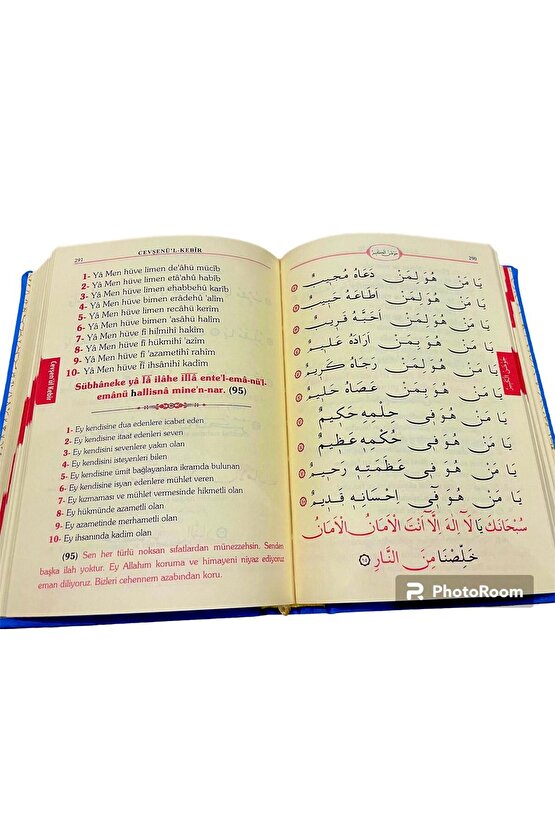 291
CEVŞENÜ'L-KEBİR
1- Yâ Men hüve limen de'âhü mücîb
2- Yâ Men hüve limen etâ'ahû habîb
3- Yâ Men hüve limen ehabbehû karîb
4- Yâ Men hüve bimen erâdehû 'alîm
5- Yâ Men hüve limen recâhü kerîm
6- Yâ Men hüve bimen 'asâhü halîm
7- Yâ Men hüve fî hilmihî hakîm
8- Yâ Men hüve fî hükmihî 'azîm
9- Yâ Men hüve fî 'azametihî rahîm
10- Yâ Men hüve fî ihsânihî kadîm
Sübhâneke yâ lâ ilâhe illâ ente'l-emâ-nü'l-
emânü hallisnâ mine'n-nar. (95)
1- Ey kendisine dua edenlere icabet eden
2- Ey kendisine itaat edenleri seven
3- Ey kendisini sevenlere yakın olan
4- Ey kendisini isteyenleri bilen
5- Ey kendisine ümit bağlayanlara ikramda bulunan
6- Ey kendisine isyan edenlere mühlet veren
7- Ey kızmaması ve mühlet vermesinde hikmetli olan
8- Ey hükmünde azametli olan
9- Ey azametinde merhametli olan
10- Ey ihsanında kadim olan
(95) Sen her türlü noksan sıfatlardan münezzehsin. Senden
başka ilah yoktur. Ey Allahım koruma ve himayeni niyaz ediyoruz
eman diliyoruz. Bizleri cehennem azabından koru.
Cevşenü'l Kebir
290
يَا مَنْ هُوَ لِمَنْ دَعَاهُ مُجِيبٌ
يَا مَنْ هُوَ لِمَنْ اَطَاعَهُ حَبِيبٌ
يَا مَنْ هُوَ لِمَنْ اَحَبَّهُ قَرِيبٌ
يَا مَنْ هُوَ بِمَنْ اَرَادَهُ عَلِيمٌ
يَا مَنْ هُوَ لِمَنْ رَجَاهُ كَرِيمٌ
يَا مَنْ هُوَ بِمَنْ عَصَاهُ حَلِيمٌ
يَا مَنْ هُوَ فِي حِلْمِهِ حَكِيمٌ
يَا مَنْ هُوَ فِي حُكْمِهِ عَظِيمٌ
يَا مَنْ هُوَ فِي عَظَمَتِهِ رَحِيمٌ
يَا مَنْ هُوَ فِي اِحْسَانِهِ قَدِيمٌ
سُبْحَانَكَ يَا لَا اِلٰهَ اِلَّا اَنْتَ الْاَمَانُ الْاَمَانُ
خَلِّصْنَا مِنَ النَّارِ
PhotoRoom